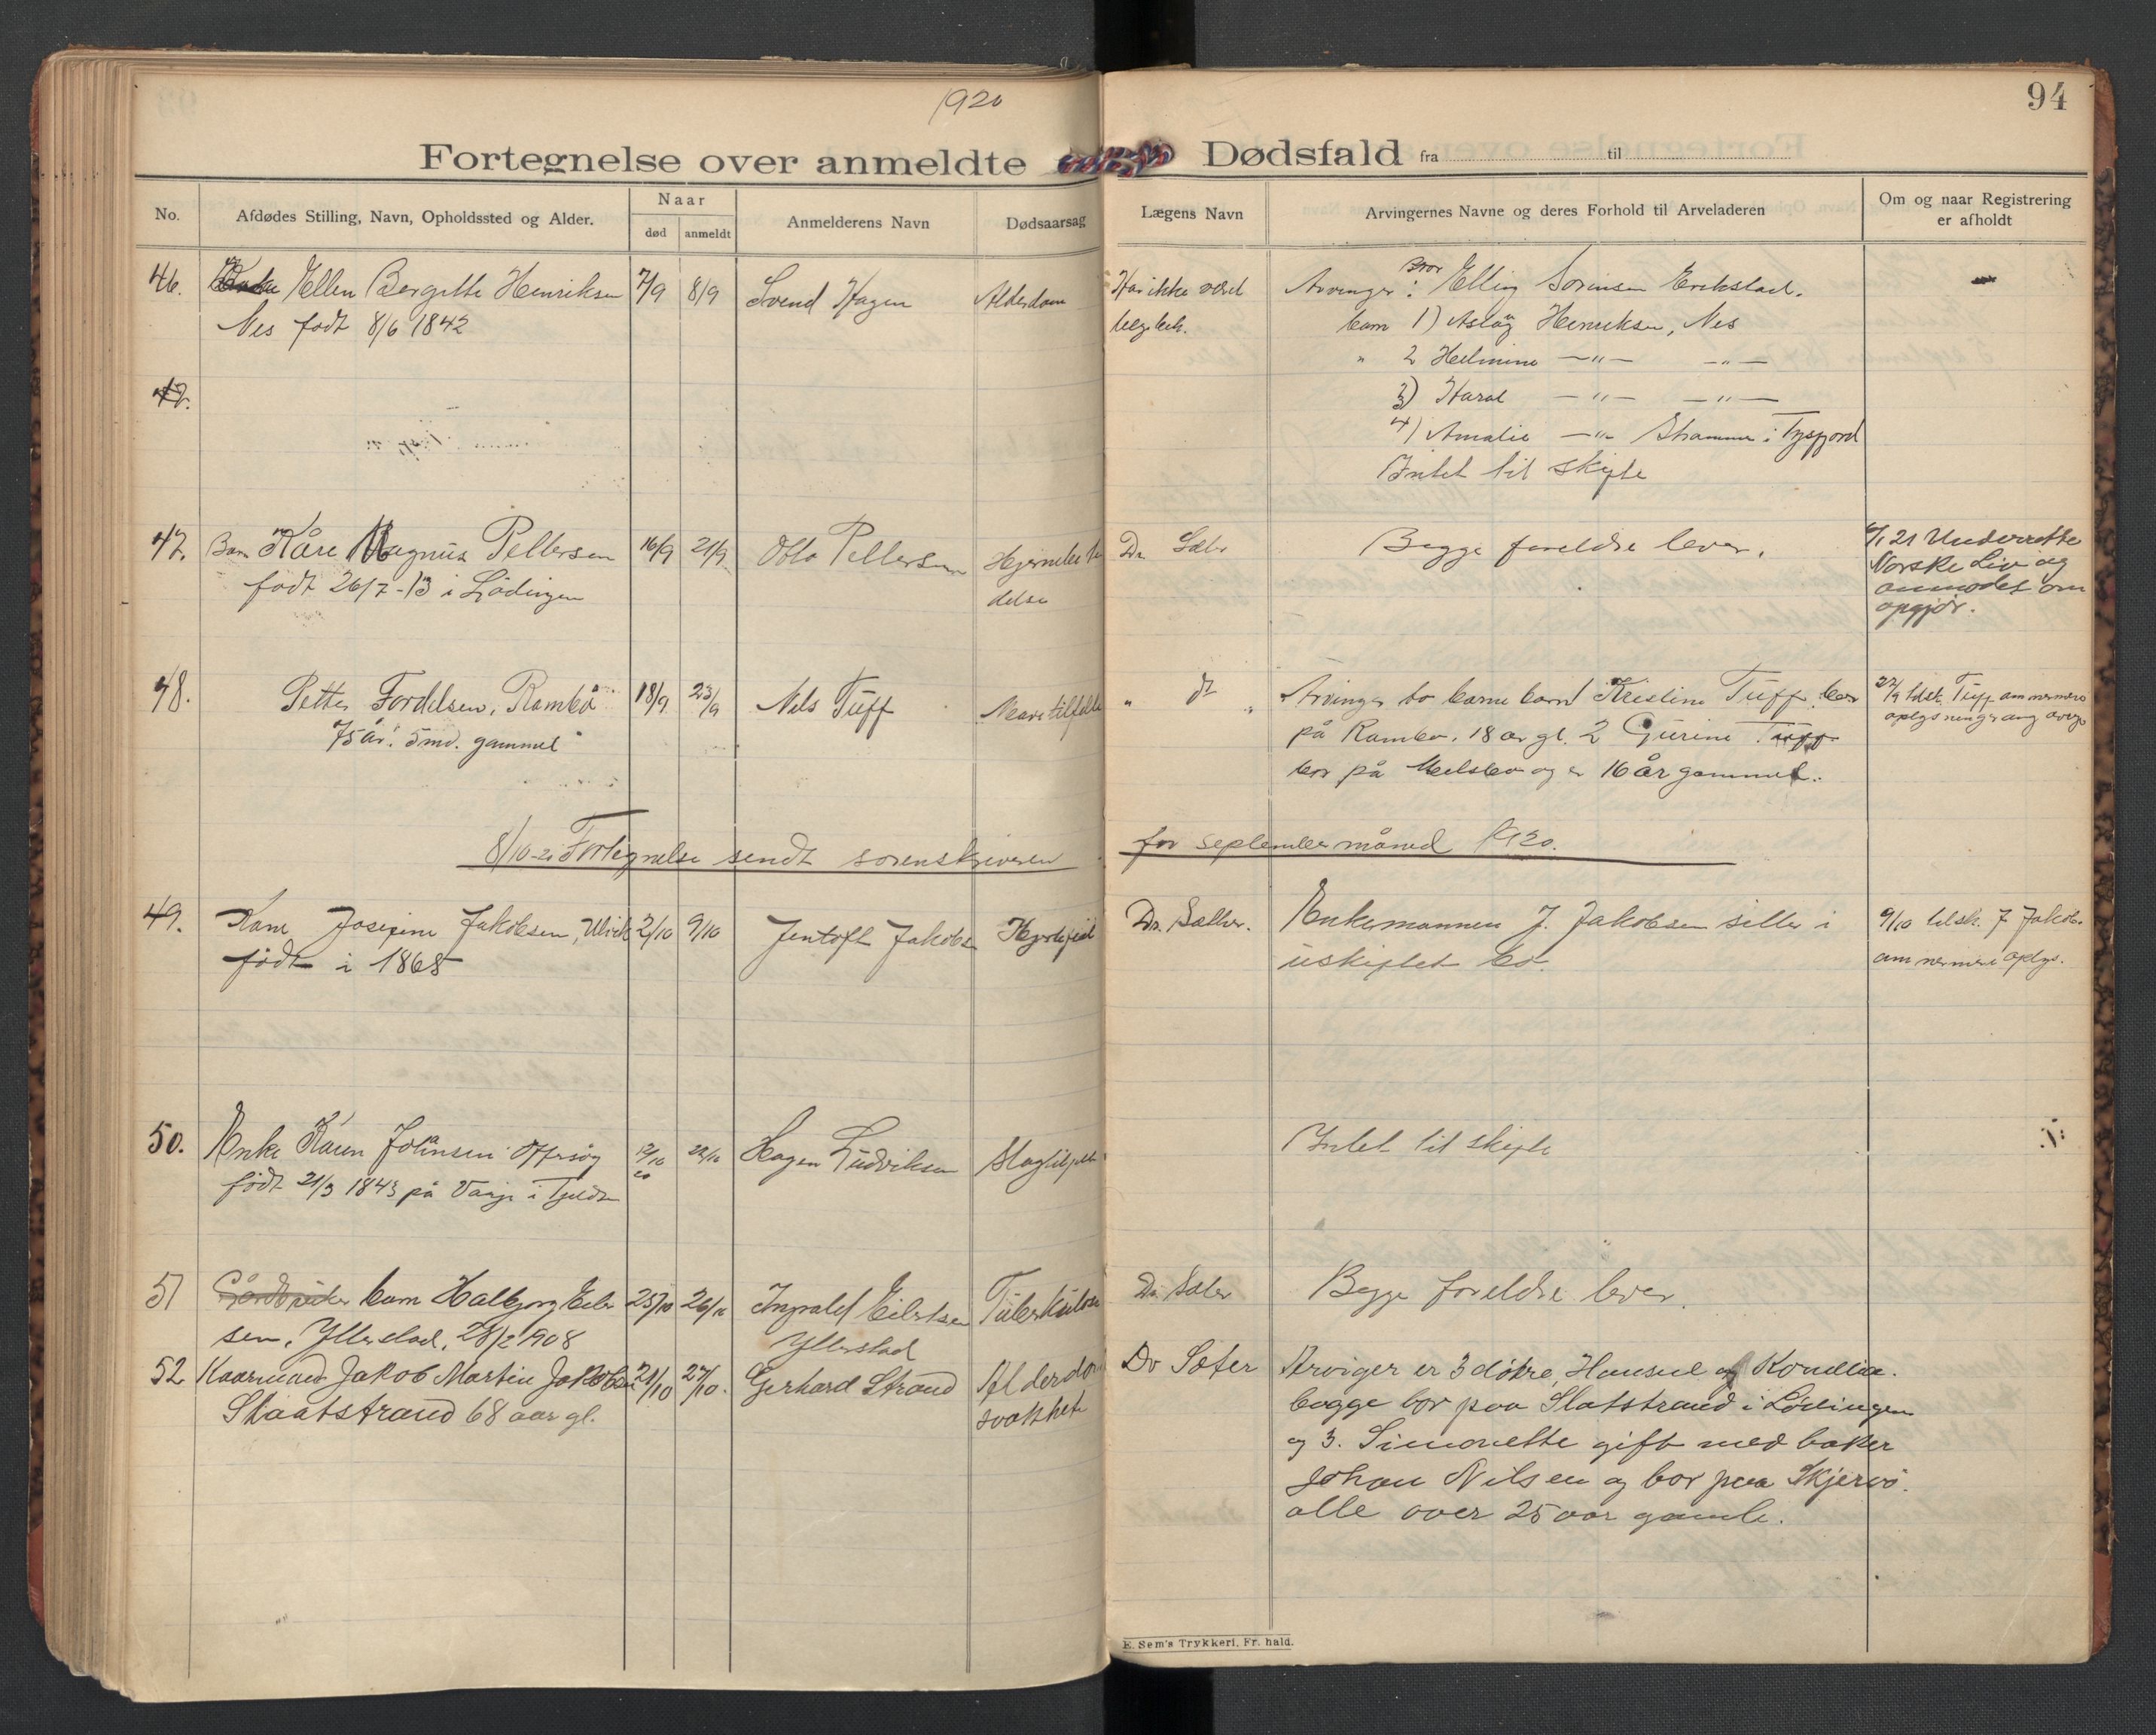 1920
94
Fortegnelse over anmeldte Dødsfald fra til
No.
Afdødes Stilling, Navn, Opholdssted og Alder.
Naar
død
anmeldt
Anmelderens Navn
Dødsaarsag
Lægens Navn
Arvingernes Navne og deres Forhold til Arveladeren
Om og naar Registrering
er afholdt
46. Ellen Bergitte Henriksen 7/9 8/9 Svend Hagen Alderdom Har ikke været Arvinger: Bror Elling Sørensen Erikstad.
Nes født 8/6 1842 barn 1) Aslaug Henriksen, Nes
" 2 Helmine —"— —"—
47.
3) Haral —"— —"—
4) Amalie —"— i Tysfjord
Intet til skifte
47. Barn Kåre Magnus Pettersen 16/9 21/9 Otto Pettersen Dr. Begge foreldre lever. 21 Underrette
født 26/7-13 i Lødingen delse Norske Liv og
anmodet om
opgjør.
48. Petter Fordelsen, Rambø 18/9 23/9 Nils Tuff " dt " Arvinger to barnebarn Kristine Tuff, bor
75 år. 5 md. gammel på Rambø. 18 år gl. 2 Gurine Tuff
bor på og er 16 år gammel.
8/10-20 Fortegnelse sendt sorenskriveren for september måned 1920.
49. Kone Josefine Jakobsen, Ulvik 2/10 9/10 Jentoft Jakobsen Hjertefeil Dr. Sæther. Enkemannen J. Jakobsen sitter i 9/10 tilsk. J Jakob.
født i 1868 uskiftet bo. om nermere oplys.
50. Enke Karen Johansen Offersøy 12/10 20 22/10 Hagen Ludviksen Slagtilfelle Intet til skifte
født 21/3 1843 på i Tjeldsu
51 Gårdbruker barn Halbjørg Eilert 25/10 26/10 Ingvald Eilertsen Tuberkulose Dr. Sæter Begge foreldre lever.
sen, Yllerstad, 28/2 1908 Yllerstad
52 Kaarmand Jakob Martin Jakobsen 21/10 27/10. Gerhard Strand Alderdom Dr Sæter Arviger er 3 døtre, Hansine og Konellie.
Slaatstrand 68 aar gl. svakhet begge bor paa Slatstrand i Lødingen
og 3. Simonette gift med baker
Johan Nilsen og bor paa Skjervø.
alle over 25 aar gamle.
E. Sem's Trykkeri, Fr. hald.